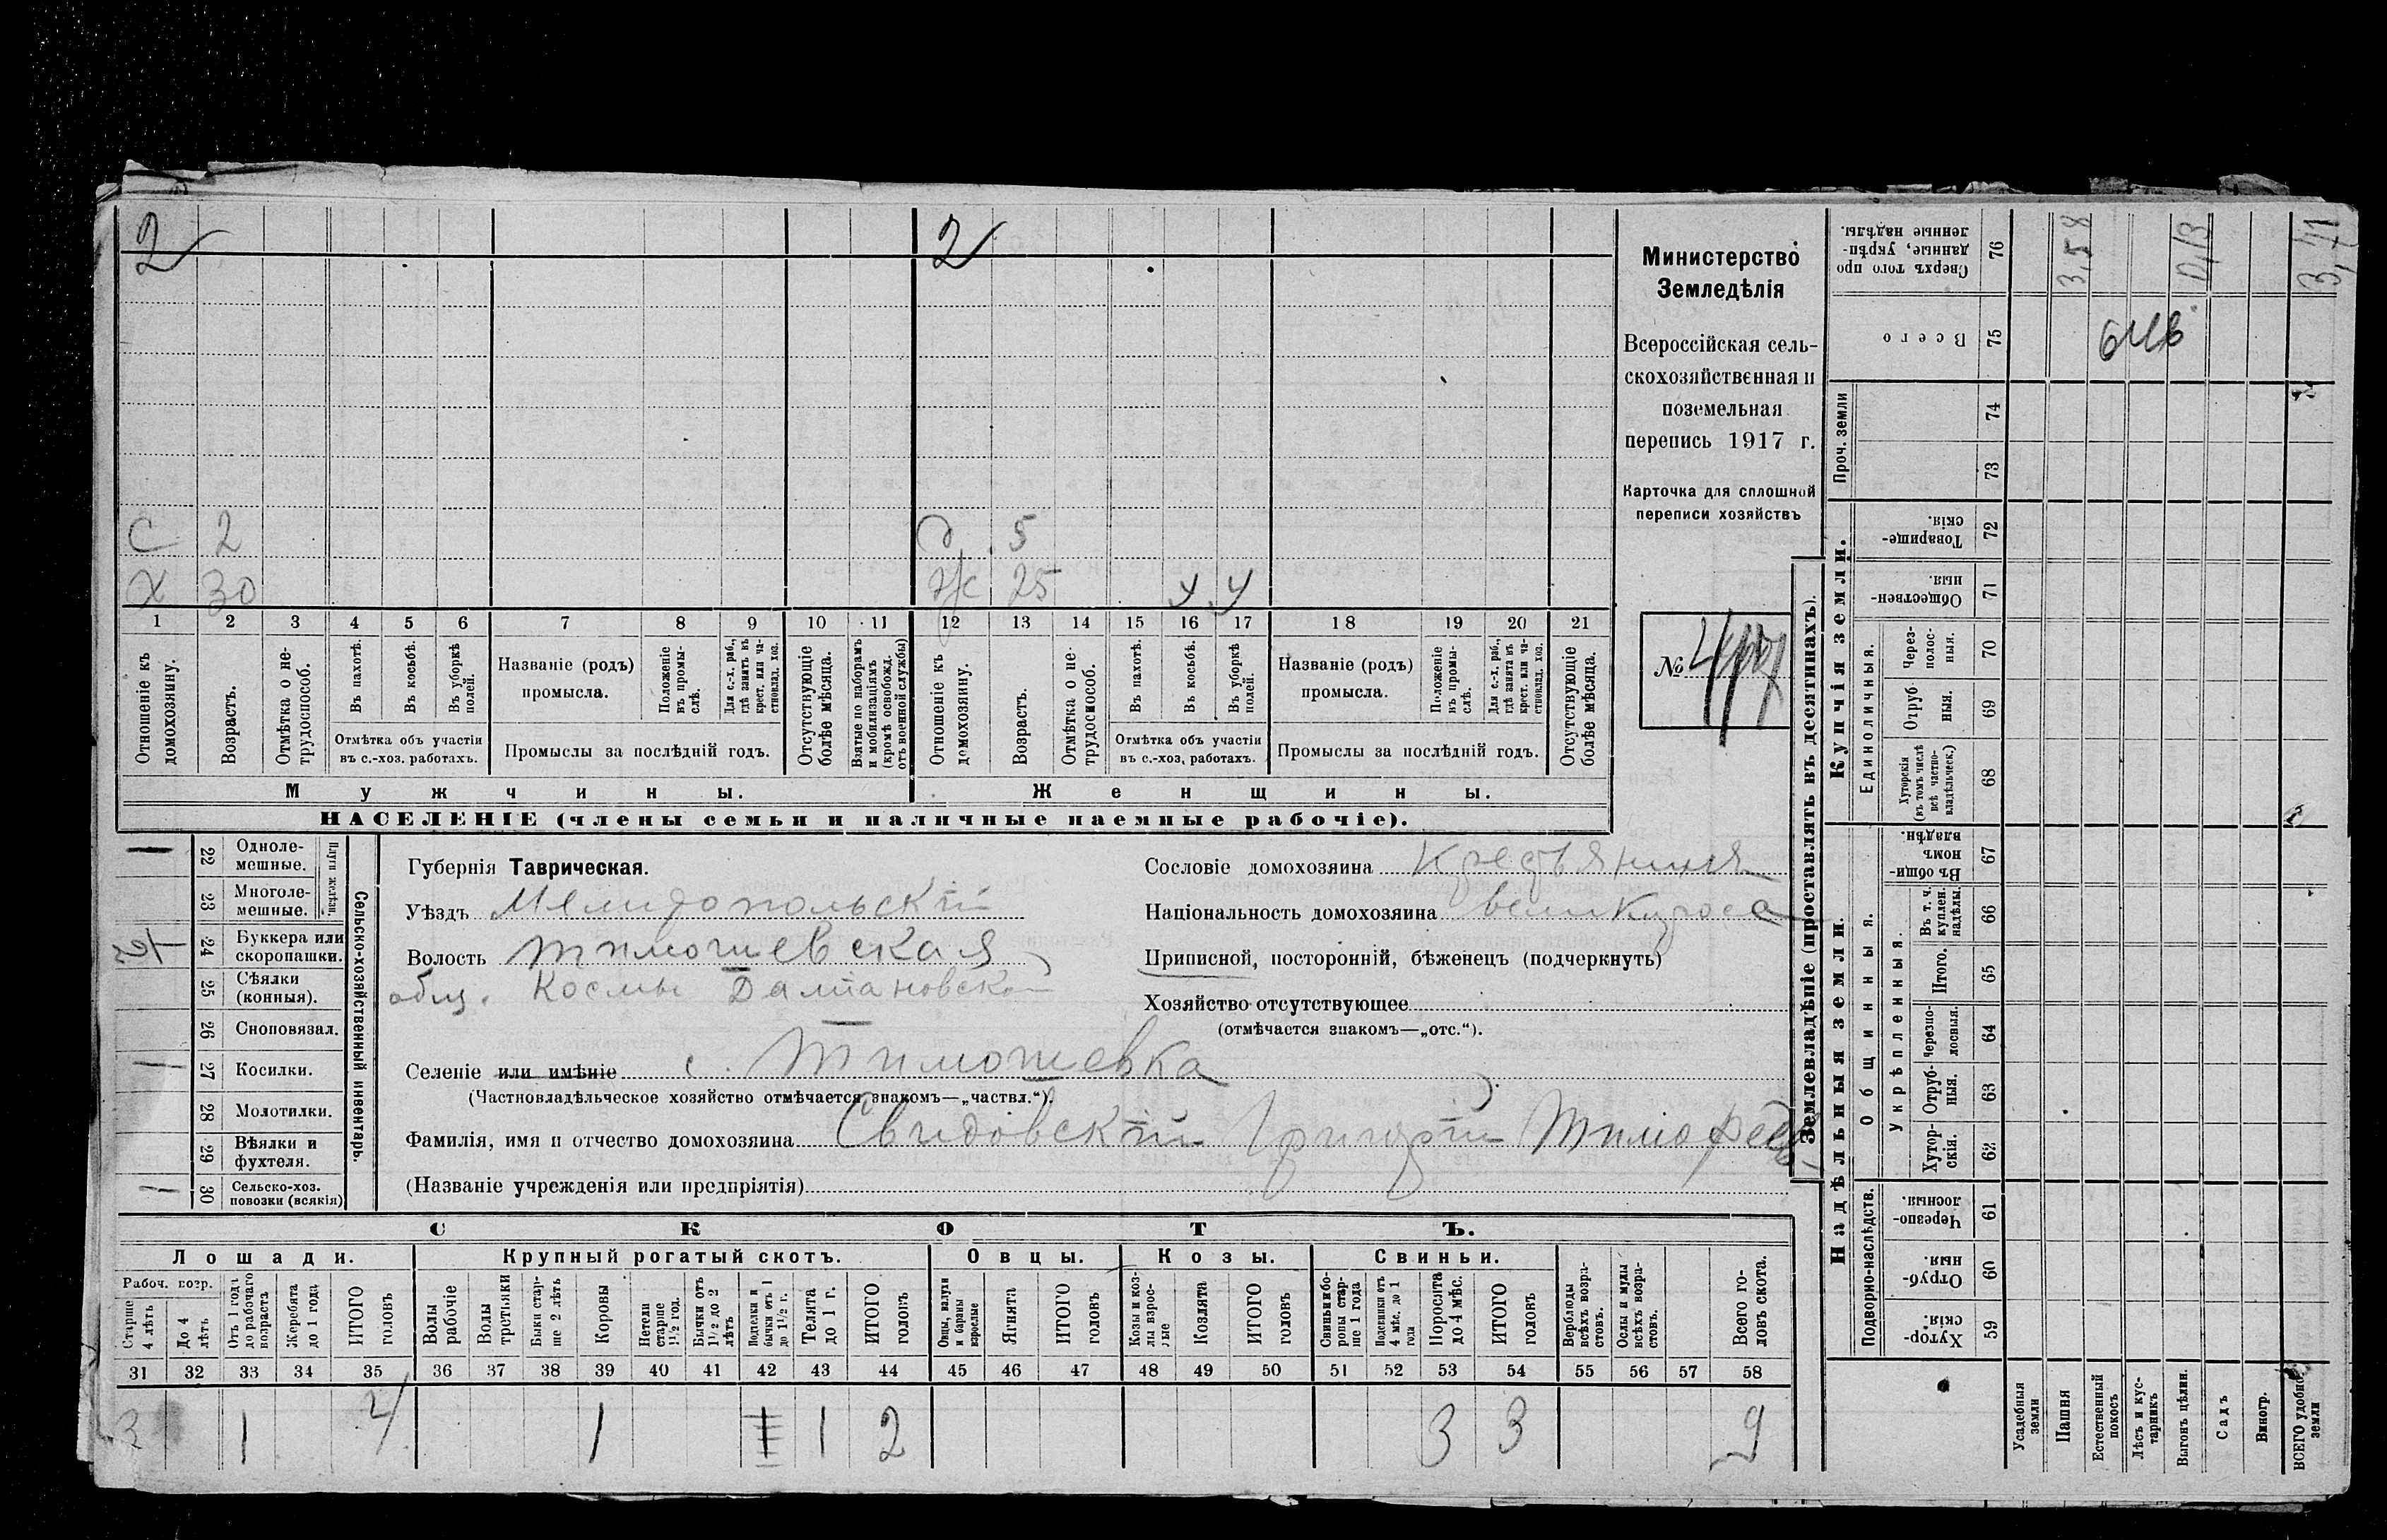 2 2
С 2 д 5
Х 30 ж 25 у у
1 2 3 4 5 6 7 8 9 10 11 12 13 14 15 16 17 18 19 20 21
Отношеніе къ домохозяину.
Возрастъ.
Отмѣтка о нетрудоспособ.
Въ пахотѣ.
Въ косьбѣ.
Въ уборкѣ полей.
Отмѣтка объ участіи въ с.-хоз. работахъ.
Названіе (родъ) промысла.
Положеніе въ промыслѣ.
Для с.-х. раб., гдѣ занятъ въ крест. или частновлад. хоз.
Промыслы за послѣдній годъ.
Отсутствующіе болѣе мѣсяца.
Взятые по наборамъ и мобилизаціямъ (кромѣ освобожд. отъ военной службы)
Отношеніе къ домохозяину.
Возрастъ.
Отмѣтка о нетрудоспособ.
Въ пахотѣ.
Въ косьбѣ.
Въ уборкѣ полей.
Отмѣтка объ участіи въ с.-хоз. работахъ.
Названіе (родъ) промысла.
Положеніе въ промыслѣ.
Для с.-х. раб., гдѣ занята въ крест. или частновлад. хоз.
Промыслы за послѣдній годъ.
Отсутствующіе болѣе мѣсяца.
Мужчины. Женщины.
НАСЕЛЕНІЕ (члены семьи и наличные наемные рабочіе).
Министерство
Земледѣлія
Всероссійская сель-
скохозяйственная и
поземельная
перепись 1917 г.
Карточка для сплошной
переписи хозяйствъ
№
22 Однолемешные.
23 Многолемешные.
Плуги желѣзн.
24 Буккера или скоропашки.
25 Сѣялки (конныя).
26 Сноповязал.
27 Косилки.
28 Молотилки.
29 Вѣялки и фухтеля.
30 Сельско-хоз. повозки (всякія)
Сельско-хозяйственный инвентарь.
Губернія Таврическая.
Уѣздъ Мелитопольскій
Волость Тимошевская
общ. Космы Даміановской
Сословіе домохозяина Крестьянинъ
Національность домохозяина великоросс
Приписной, посторонній, бѣженецъ (подчеркнуть)
Хозяйство отсутствующее
(отмѣчается знакомъ—„отс.“).
Селеніе или имѣніе с. Тимошевка
(Частновладѣльческое хозяйство отмѣчается знакомъ—„частвл.“).
Фамилія, имя и отчество домохозяина Свидовскій Григорій Тимофее
(Названіе учрежденія или предпріятія)
СКОТЪ.
Лошади. Крупный рогатый скотъ. Овцы. Козы. Свиньи.
Рабоч. возр.
Старше 4 лѣтъ
До 4 лѣтъ
Отъ 1 года до рабочаго возраста
Жеребята до 1 года
ИТОГО головъ
Волы рабочіе
Волы третьяки
Быки старше 2 лѣтъ
Коровы
Нетели старше 1½ год.
Бычки отъ 1½ до 2 лѣтъ
Подтелки и бычки отъ 1 до 1½ г.
Телята до 1 г.
ИТОГО головъ
Овцы, валухи и бараны взрослые
Ягнята
ИТОГО головъ
Козы и козлы взрослые
Козлята
ИТОГО головъ
Свиньи и боровы старше 1 года
Подсвинки отъ 4 мѣс. до 1 года
Поросята до 4 мѣс.
ИТОГО головъ
Верблюды всѣхъ возрастовъ.
Ослы и мулы всѣхъ возрастовъ.
Всего головъ скота.
31 32 33 34 35 36 37 38 39 40 41 42 43 44 45 46 47 48 49 50 51 52 53 54 55 56 57 58
3 1 4 1 1 2 3 3 9
Землевладѣніе (проставлять въ десятинахъ).
Сверхъ того проданные, укрѣпленные надѣлы. 76 3,58 0,13 3,71
Всего 75
Проч. земли 74
73
Купчія земли.
Товарищескія. 72
Общественныя. 71
Единоличныя.
Черезполосныя. 70
Отрубныя. 69
Хуторскія (въ томъ числѣ всѣ частновладѣльческ.) 68
Надѣльныя земли.
Общинныя.
Въ общинномъ владѣн. 67
Укрѣпленныя.
Въ т. ч. куплен. надѣлы. 66
Итого. 65
Черезполосныя. 64
Отрубныя. 63
Хуторскія. 62
Подворно-наслѣдств.
Черезполосныя. 61
Отрубныя. 60
Хуторскія. 59
Усадебныя земли
Пашня
Естественный покосъ
Лѣсъ и кустарникъ
Выгонъ цѣлин.
Садъ
Виногр.
ВСЕГО удобной земли